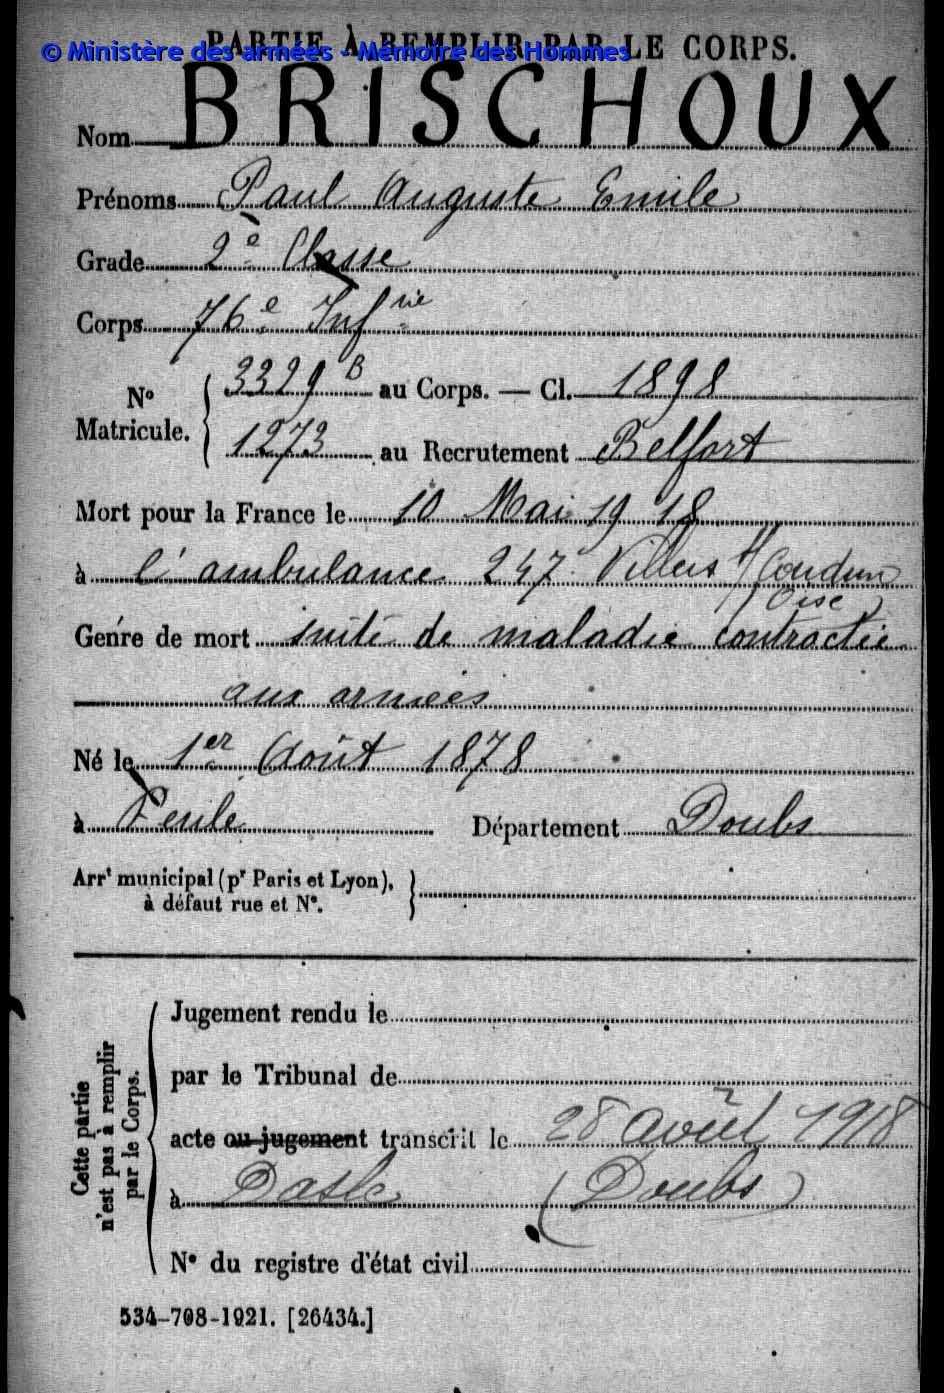 PARTIE À REMPLIR PAR LE CORPS.
© Ministère des armées - Mémoire des Hommes
Nom BRISCHOUX
Prénoms Paul Auguste Emile
Grade 2e Classe
Corps 76e Infrie
No Matricule. 3329 B au Corps. — Cl. 1898
1273 au Recrutement Belfort
Mort pour la France le 10 Mai 1918
à l'ambulance 247 Villers s/ Coudun
(Oise)
Genre de mort suite de maladie contractée
aux armées
Né le 1er Août 1878
à Département Doubs
Arrt municipal (pr Paris et Lyon),
à défaut rue et No.
Cette partie
n'est pas à remplir
par le Corps.
Jugement rendu le
par le Tribunal de
acte ou jugement transcrit le 28 avril 1918
à Dasle (Doubs)
No du registre d'état civil
534-708-1921. [26434.]